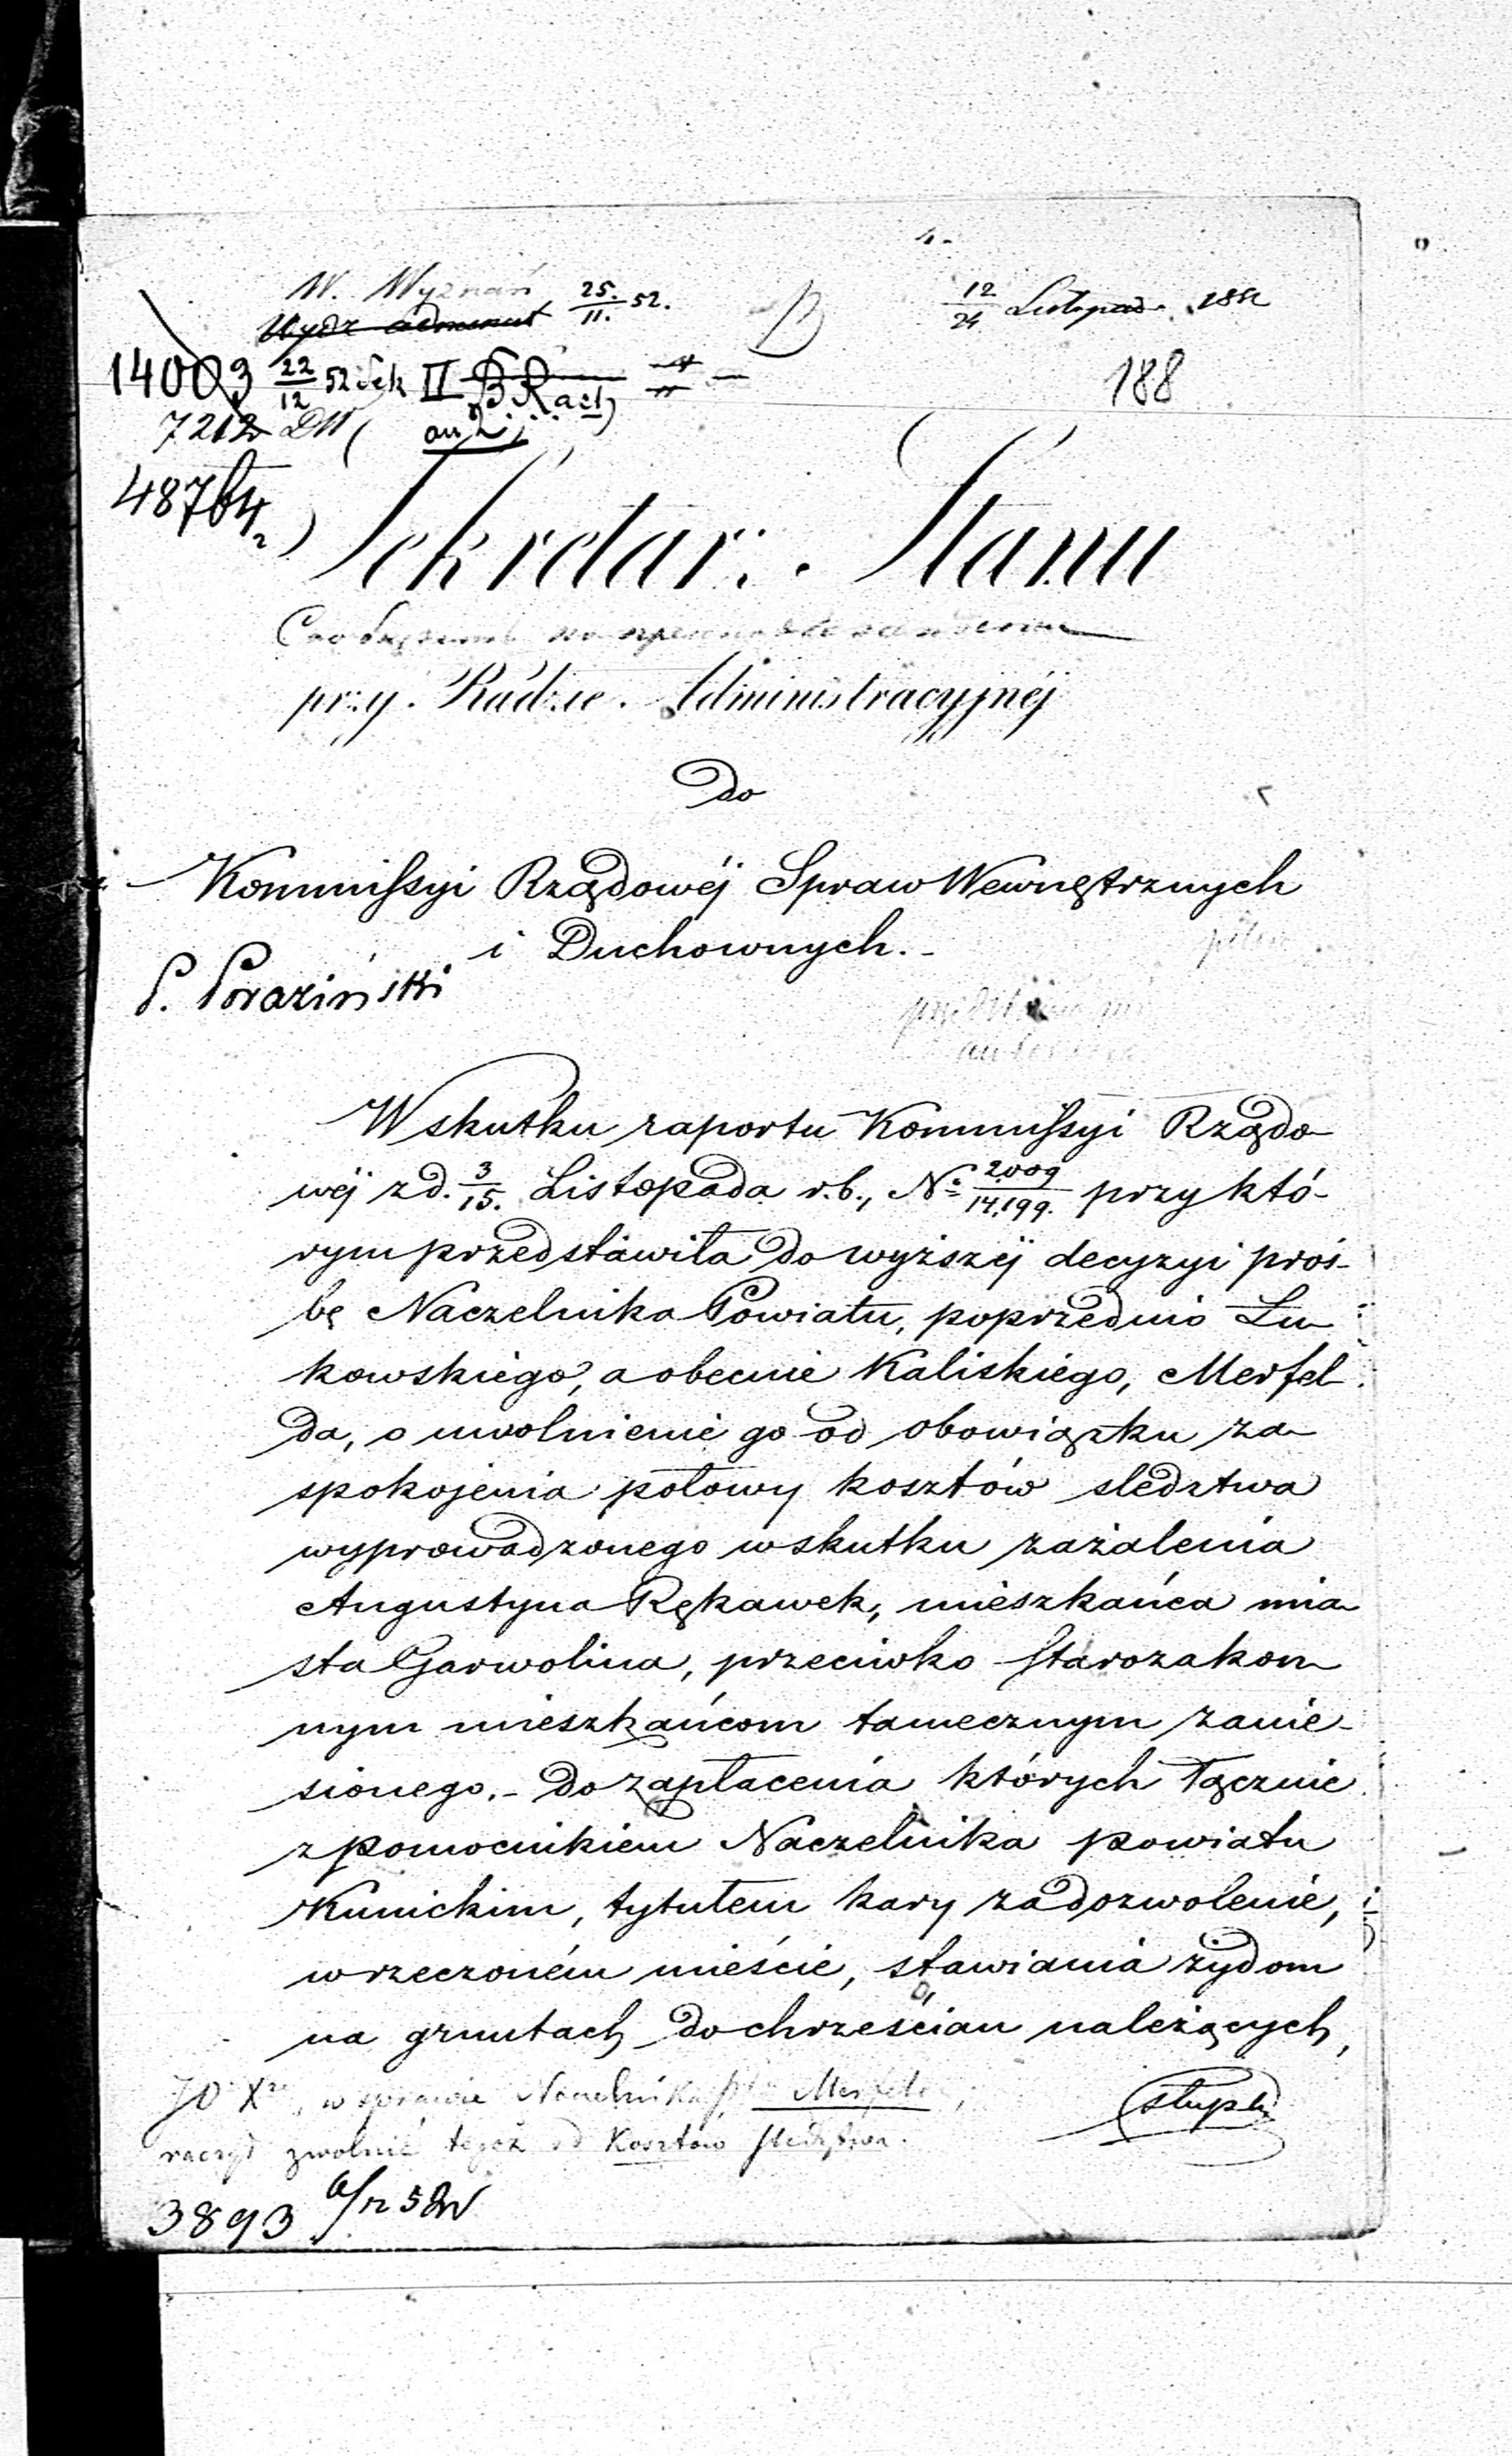 W. Wyznań 25/11. 52.
Wydz administ
12/24 Listopad 1852
14003 22/12 52 Sek II B Rach
188
7212 DW
48764
Sekretar: Stanu
przy Radzie Administracyjnéj
Do
Kommissyi Rządowéj Spraw Wewnętrznych
i Duchownych.
P. Poraziński
Wskutku raportu Kommissyi Rządo-
wéj z d. 3/15. Listopada r.b., No 2009/14,199. przy któ-
rym przedstawiła do wyższéj decyzyi proś-
bę Naczelnika Powiatu, poprzednio Łu-
kowskiego, a obecnie Kaliskiego, Merfel-
da, o uwolnienie go od obowiązku za-
spokojenia połowy kosztów sledztwa
wyprowadzonego wskutku zażalenia
Augustyna Rękawek, mieszkańca mia-
sta Garwolina, przeciwko starozakon-
nym mieszkańcom tamecznym zanie-
sionego.- do zapłacenia których łącznie
z pomocnikiem Naczelnika powiatu
Kunickim, tytułem kary za dozwolenie,
w rzeczoném mieście, stawiania żydom
na gruntach do chrześcian należących,
JO X, w sprawie Naczelnika Merfeld
raczył zwolnić tegoż od Kosztów sledztwa.
3893